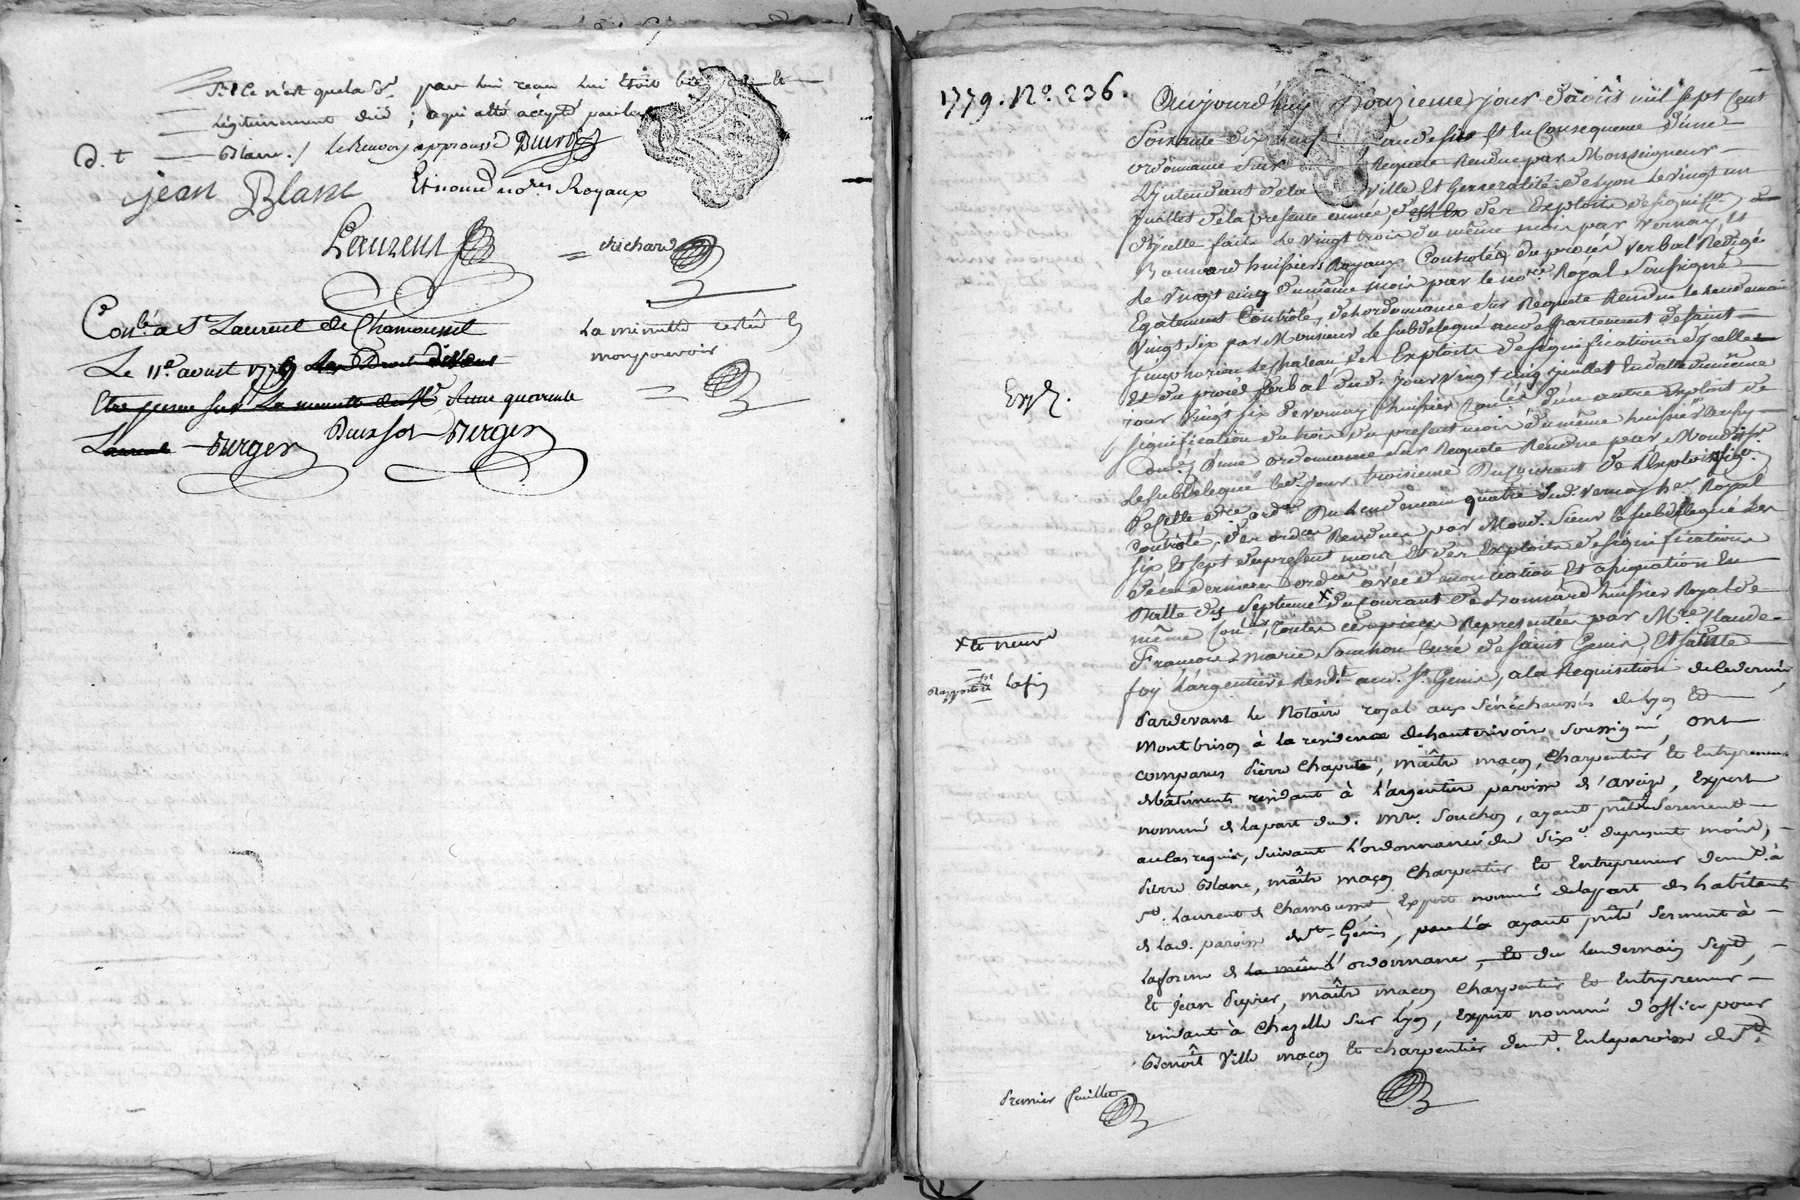 si ce n'est que la
par lui reçu lui étoit
légitimement dûe ; a qui été accepté par led.
d. t
Blanc ./ le Renvoy approuvé
jean Blanc
Et nous no.res Royaux
Laurent
Richard
Con.lé a S.t Laurent de Chamousset
La minutte restée
Le 11.e aoust 1779
mon pouvoir
sur La minutte quarente
Laurent Durger
Durger
1779. N.o 236.
Aujourd'huy Douzieme jour d'août mil sept Cent
Soixante dix neuf, Et En Consequence d'une
ordonnance sur Requete Rendue par Monseigneur
L'Intendant de la Ville Et Generalité de Lyon le vingt un
juillet de la presente année, des Exploits de signif.on
d'Icelle faite le vingt trois du même mois par Vernay Et
Bonnard huissiers Royaux Controlés, du procés verbal Rédigé
le vingt cinq du même mois par le no.re Royal Soussigné
Egalement Controlé, de l'ordonnance sur Requete Rendue le lendemain
vingt six par Monsieur le subdelegué au département de saint
simphorien le chateau des Exploits de signification d'Icelle
Et du procés verbal dud. jour vingt cinq juillet En datte du même
Exp.
jour vingt six de Vernay huissier, d'un autre Exploit de
signification du trois du present mois du même huissier
d'une ordonnance sur Requete Rendue par
le subdelegué led. jour troisieme du courant de l'Exploit
de cette du lendemain quatre dud. Vernay h.er Royal
Controlé, des ord.ces Rendues par Mond. Sieur le subdelegué les
six Et sept du present mois Et des Exploits de signification
de ces dernieres ord.ces avec denonciation Et assignation En
Datte des septieme x du courant de Bonnard huissier Royal de
même Con.lés, toutes ces pieces Representées par M.re Claude
x et neuv
François marie Souchon Curé de saint Genis, Et sainte
foy L'argentiere Resid.t aud. S.t Genis, a la Requisition de ce dernier,
Pardevant le Notaire royal aux Sénéchaussés de Lyon Et
Montbrison à la residence de hauterivoire soussigné, ont
comparus Pierre Chapute, maître maçon, Charpentier Et Entrepreneur
de bâtiments residant à l'argentiere paroisse d'aveize, Expert
nommé de la part dud. M.re Souchon, ayant prêté serment
au cas requis, suivant l'ordonnance du six.e du present mois,
Pierre Blanc, maître maçon Charpentier Et Entrepreneur dem.t à
S.t Laurent de Chamousset Expert nommé de la part des habitants
de lad. paroisse de S.t Genis, ayant prêté serment à
la forme de la même l'ordonnance, et du lendemain sept,
Et jean Dupier, maître maçon Charpentier Et Entrepreneur
residant à Chazelle sur Lyon, Expert nommé d'office pour
Benoît Ville maçon Et charpentier dem.t En la paroisse de S.t
Premier feuillet